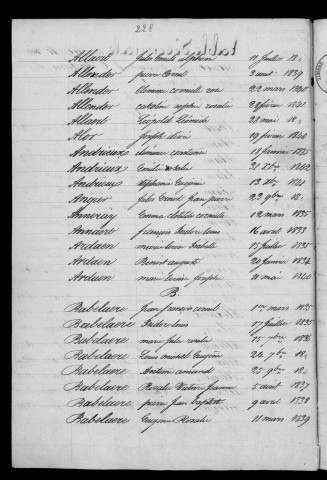 228
Allaert Jules Emile alphonse 11 Juillet 18
Allender pierre Cornil 3 aout 1839
Allender clemence cornille rose 22 mars 1840
Allender sophie rosalie 28 février 1841
Allaert Léopold 28 mai 18
Alor Joseph 19 février 1840
Andrieux clemence constance 18 février 1835
Andrieux Emilie 21 Xbre 1842
Andrieux Stéphanie Eugénie 13 Xbre 1841
Angier Jules Cornil Jean pierre 22 9bre 18
Anneray Emma clotilde cornille 12 mars 1835
Annaert françois Isidore louis 16 avril 1833
Arduen marie louise Isabelle 15 juillet 1835
Arduen Benoit auguste 20 février 1834
Arduen marie Louise Josephe 11 mai 1840
B.
Babelaere Jean francois cornil 1er mars 1835
Babelaere Isidore louis 17 Juillet 1835
Babelaere marie Julie rosalie 15 7bre 1836
Babelaere Louis michel Eugène 24 7bre 18
Babelaere amand 25 9bre 18
Babelaere Rosalie Victoire Jeanne 5 aout 1837
Babelaere pierre Jean baptiste 9 avril 1838
Babelaere Eugénie Rosalie 11 mars 1839